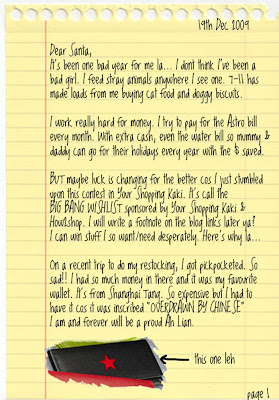 19th Dec 2009
Dear Santa,
It's been one bad year for me la... I dont think I've been a
bad girl. I feed stray animals anywhere I see one. 7-11 has
made loads from me buying cat food and doggy biscuits.
I work really hard for money. I try to pay for the Astro bill
every month. With extra cash, even the water bill so mummy &
daddy can go for their holidays every year with the $ saved.
BUT maybe luck is changing for the better cos I just stumbled
upon this contest in Your Shopping Kaki. It's call the
BIG BANG WISHLIST sponsored by Your Shopping Kaki &
How2shop. I will write a footnote on the blog links later ya?
I can win stuff I so want/need desperately. Here's why la...
On a recent trip to do my restocking, I got pickpocketed. So
sad!! I had so much money in there and it was my favourite
wallet. It's from Shanghai Tang. So expensive but I had to
have it cos it was inscribed "OVERDRAWN BY CHINESE"
I am and forever will be a proud Ah Lian.
this one leh
page 1